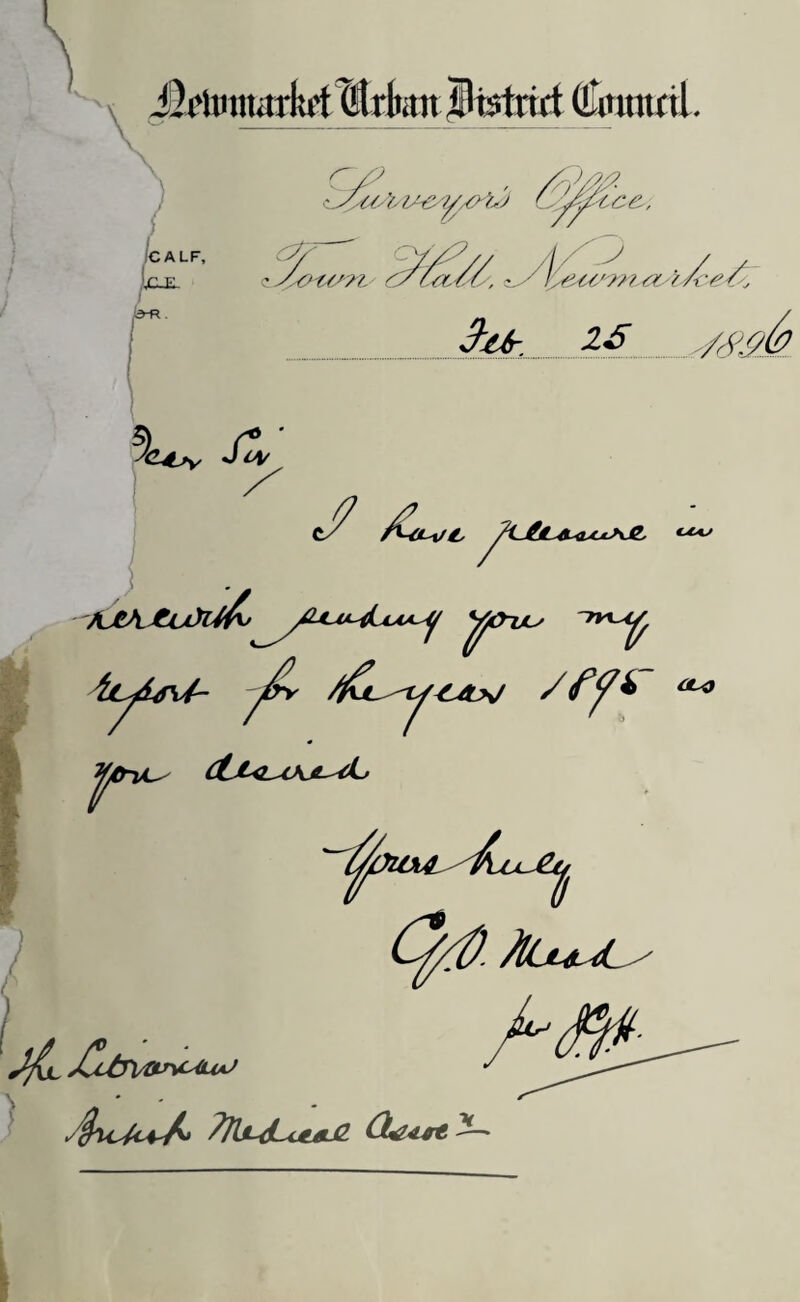 Newmarket Urban District Council.
Surveyor's Office,
CALF,
C.E.
OR.
Town Hall, Newmarket,
Feb. 25 1896
Dear Sir
I have pleasure in
herewith sending you my
report for the year 1895 as
you desired
Yours truly
The Librarian
British Medical Assoc